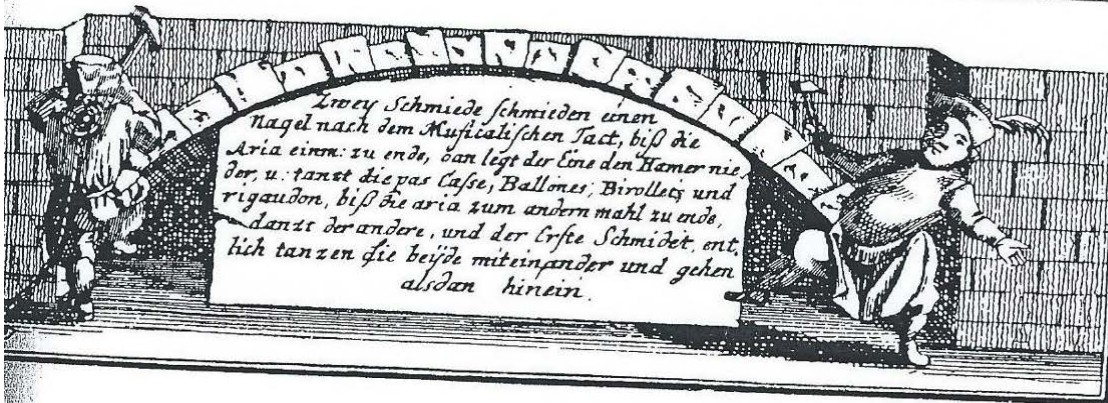 Zwey Schmiede schmieden einen
Nagel nach dem Musicalischen Tact, biß die
Aria einm: zu ende, dan legt der Eine den Hamer nie,
der, u: tantzt die pas Casse, Ballones, Birollets und
rigaudon, biß die aria zum andern mahl zu ende,
dantzt der andere, und der Erste Schmidet, ent,
lich tanzen sie beÿde miteinander und gehen
alsdan hinein.